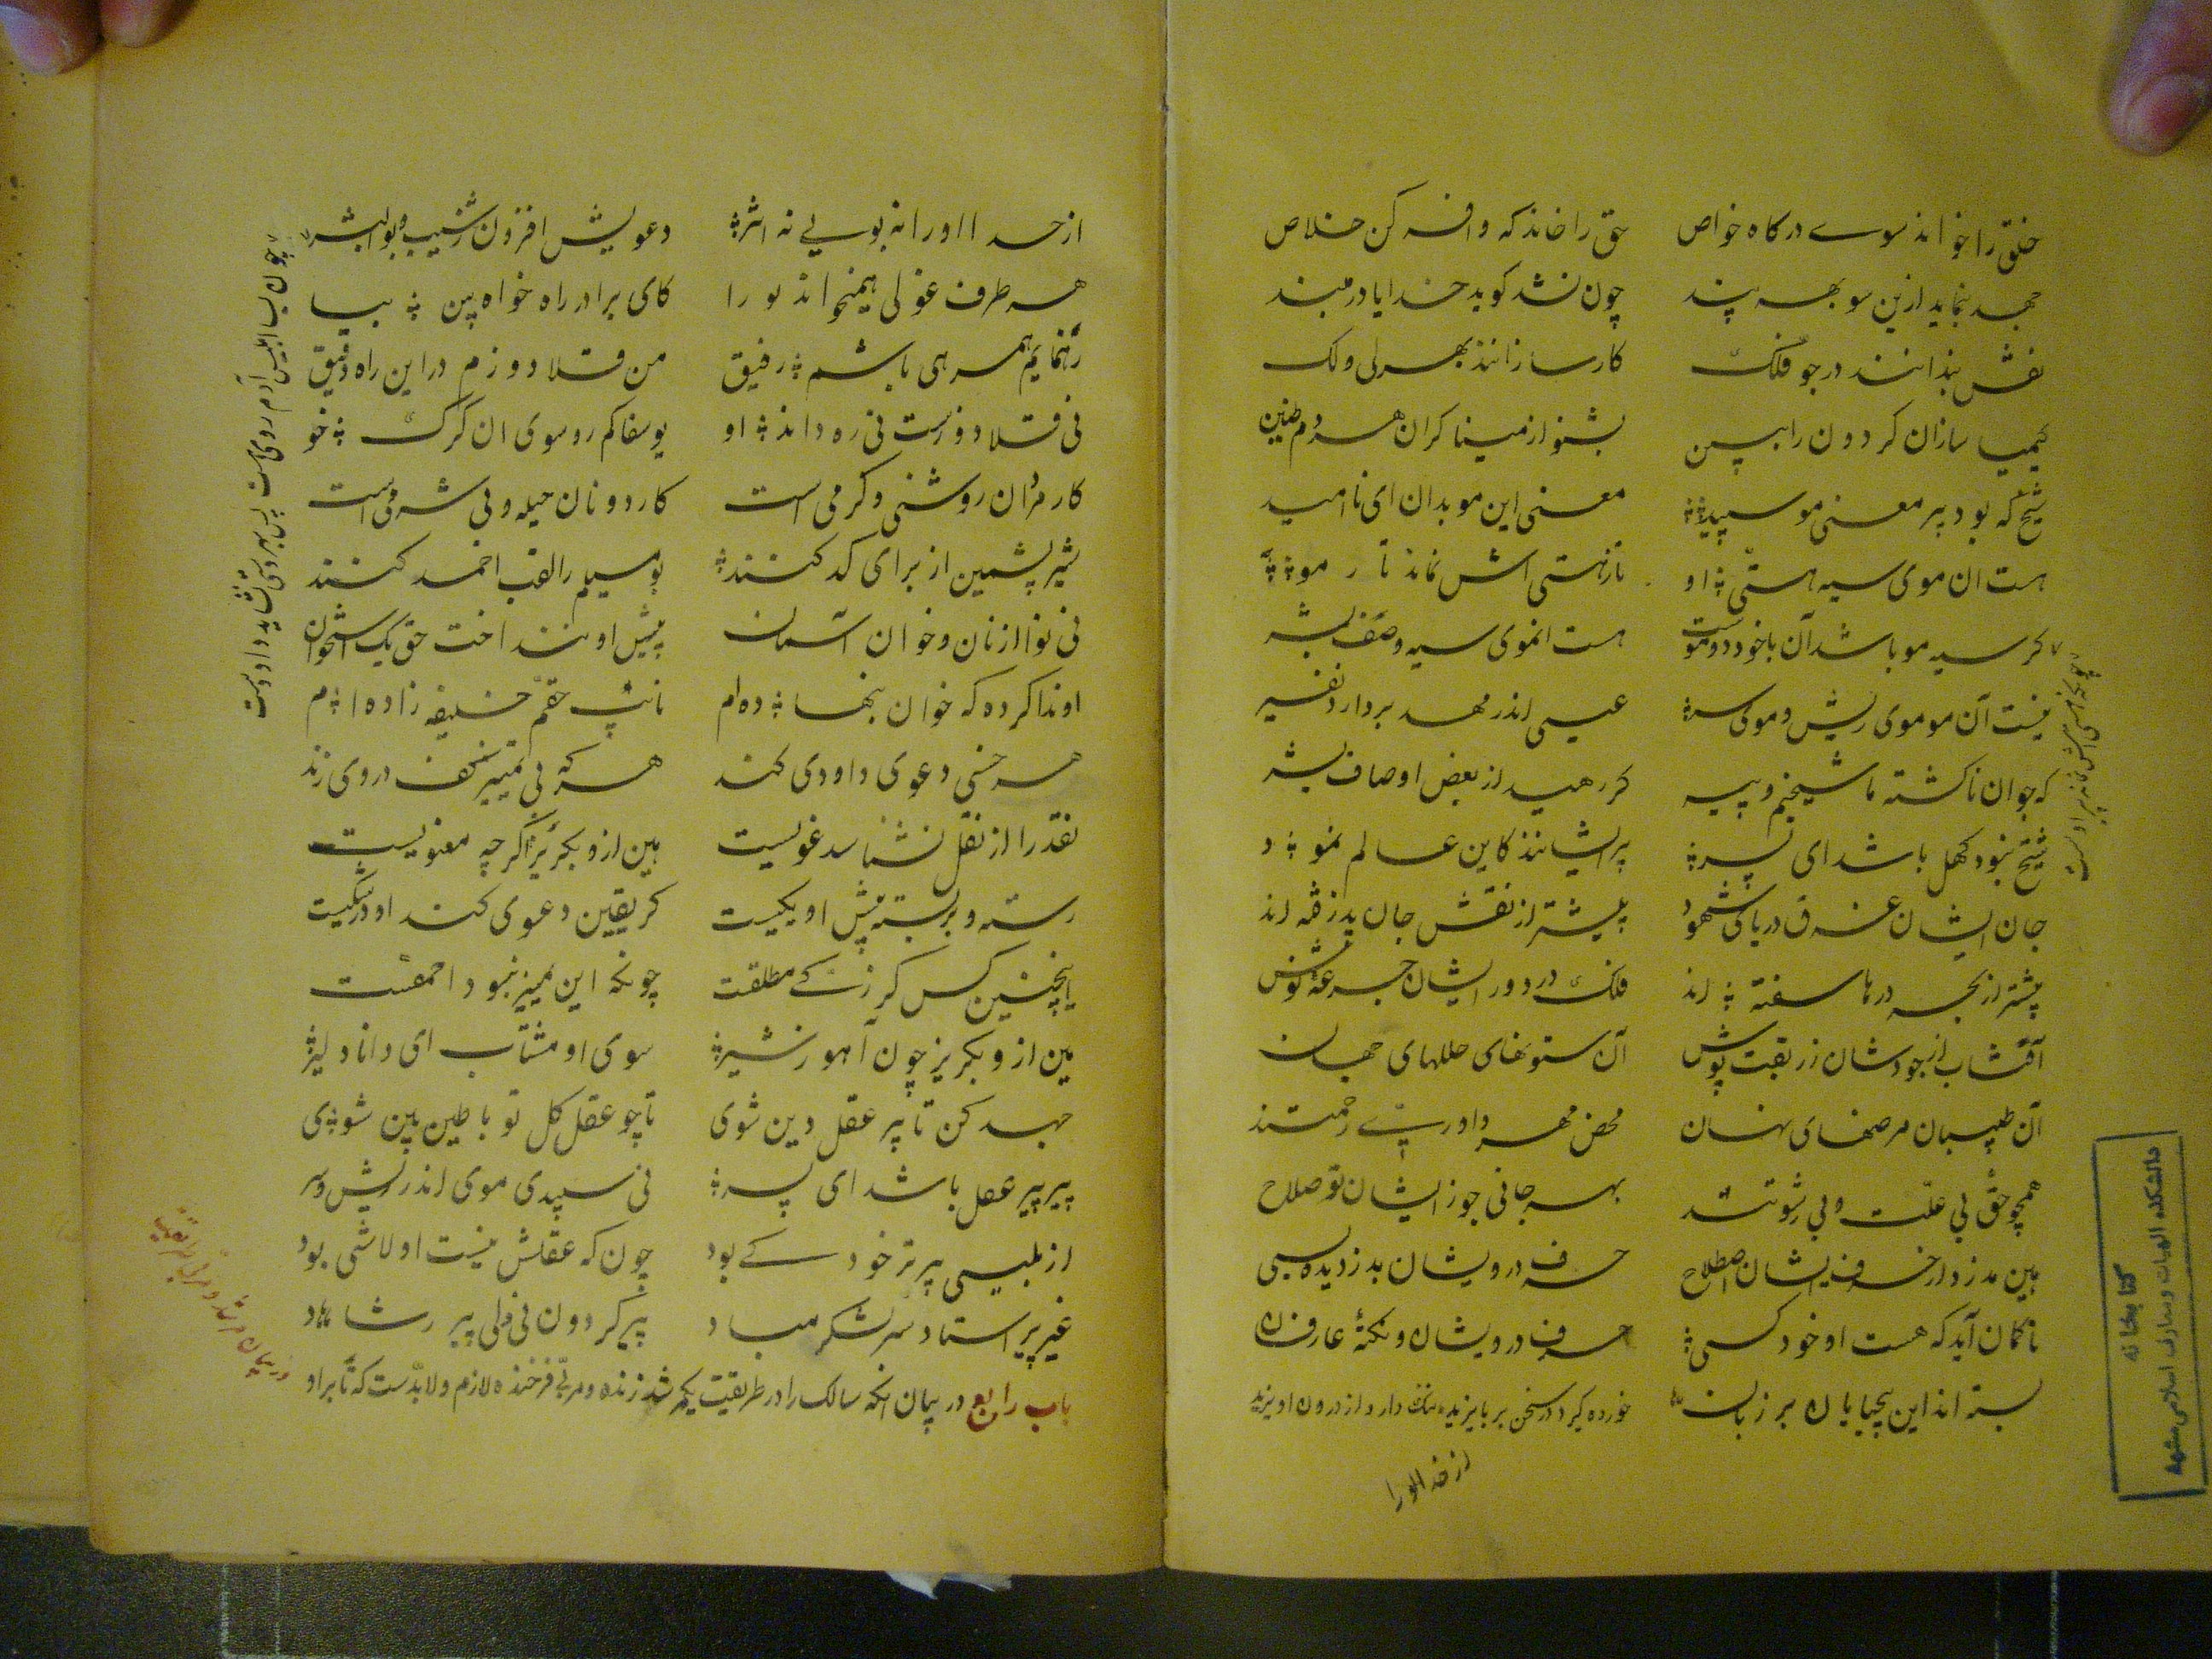 خلق را خواند سوے درکاه خواص حق را خاند که وافر کن خلاص
جهد بنماید ازین سو بهر پند چون نشد کوید خدایا در مبند
نقش بندانند در جو فلک کارسازانند بهر لی ولک
کیمیا سازان کردون را ببین بشنو از میناکران هر دم طنین
شیخ که بود پیر معنی مو سپید معنی این مو بدان ای نا امید
هست ان موی سیه هستی او تا ز هستی اش نماند تار مو
کر سیه مو باشد آن با خود دو موست هست انموی سیه وصف بشر
نیست آن مو موی ریش و موی سر عیسی اندر مهد بردارد نفیر
که جوان ناکشته ما شیخیم و پیر کر رهید از بعض اوصاف بشر
شیخ نبود کهل باشد ای پسر پیر ایشانند کاین عالم نبود
جان ایشان غرق دریای شهود پیشتر از نقش جان پدرفته اند
پیشتر از بحر درها سفته اند فلک در دور ایشان جرعه نوش
آفتاب از جودشان زربفت پوش آن ستونهای خللهای جهان
آن طبیبان مرضهای نهان محض مهر و داوری و رحمتند
همچو حق بی علت و بی رشوتند بهر جانی جوز ایشان تو صلاح
هین مدزد از حرف ایشان اصطلاح حرف درویشان بدزدیده بسی
تا کمان آید که هست او خود کسی حرف درویشان و نکتهٔ عارفان
بسته اند این بیحیایان بر زبان خورده کیرد در سخن بر بایزید ننک دارد از درون او یزید
از خدا او را
چونکه هستی اش نماند پیر اوست
دانشکده الهیات و معارف اسلامی مشهد
کتابخانه
از خدا او را نه بویی نه اثر دعویش افزون ز شیب و بوالبشر
هر طرف غولی همیخواند تو را کای برادر راه خواهی هین بیا
رهنمایم همرهی باشم رفیق من قلاووزم در این راه دقیق
نی قلاووزست نی ره داند او یوسفا کم رو سوی ان کرک خو
کار مردان روشنی و کرمی است کار دونان حیله و بی شرمی است
شیر پشمین از برای کد کنند بو مسیلم را لقب احمد کنند
بی نوا از نان و خوان آسمان پیش او ننداخت حق یک استخوان
او ندا کرده که خوان بنهاده ام نائب حقم خلیفه زاده ام
هر خسی دعوی داودی کند هر که بی تمییز کف در وی زند
نقد را از نقل نشناسد غویست هین از و بکریز اکر چه معنویست
رسته و بربسته پیش او یکیست کر یقین دعوی کند او در شکیست
اینچنین کس کر زکے مطلقست چونکه این تمییز نبود احمقست
هین از و بکریز چون آهو ز شیر سوی او مشتاب ای دانا دلیر
جهد کن تا پیر عقل و دین شوی تا چو عقل کل تو باطین بین شوی
پیر پیر عقل باشد ای پسر نی سپیدی موی اندر ریش و سر
از بلیسی پیرتر خود کے بود چون که عقلش نیست او لاشی بود
غیر پیر استاد سر لشکر مباد پیر کردون نی ولی پیر رشاد
باب رابع در بیان انکه سالک را در طریقت یک مرشد زنده و مربی فرخنده لازم ولابدست که تا بر او
چون بسا ابلیس آدم روی هست پس بهر دستی نشاید داد دست
در بیان مرشد و مربی طریقت